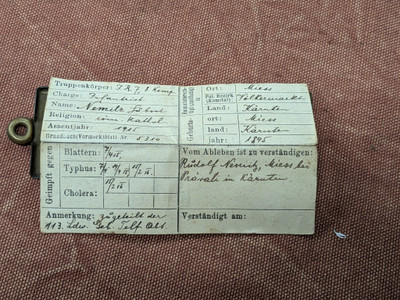 Truppenkörper: I.R.7. 8 Komp.
Charge: Infanterist
Name Nemitz
Religion: röm. kathol.
Assentjahr: 1915
Grundbuch(Vormerk)blatt Nr.
Geimpft gegen
Blattern:
Typhus:
Cholera:
Anmerkung: zugeteilt der
113. Ldw. Geb. Telf. Abt.
Ort: Miess
Pol. Bezirk (Komitat): Völkermarkt
Land: Kärnten
Geburts-
ort: Miess
land: Kärnten
jahr: 1895
Vom Ableben ist zu verständigen:
Rudolf Nemitz, Miess bei
Prävali in Kärnten
Verständigt am: